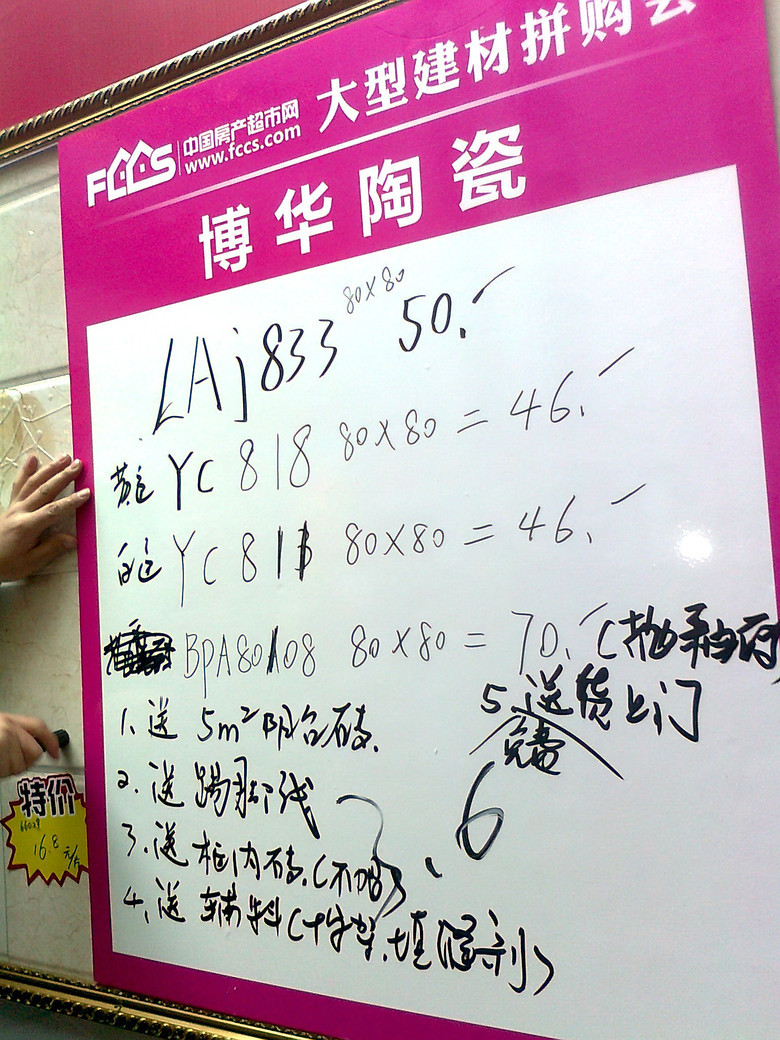 大型建材拼购会
FCCS 中国房产超市网
www.fccs.com
博华陶瓷
LAj833 80×80 50.-
黄色 YC 818 80×80 = 46.-
白色 YC 811 80×80 = 46.-
BPA80108 80×80 = 70.- (抛釉砖)
1. 送 5m² 阳台砖.
5. 送货上门
免费
2. 送 踢脚线
3. 送 柜内砖. (不
6
4. 送 辅料 (十字架. 填缝剂)
特价
66029
16.8 元/片